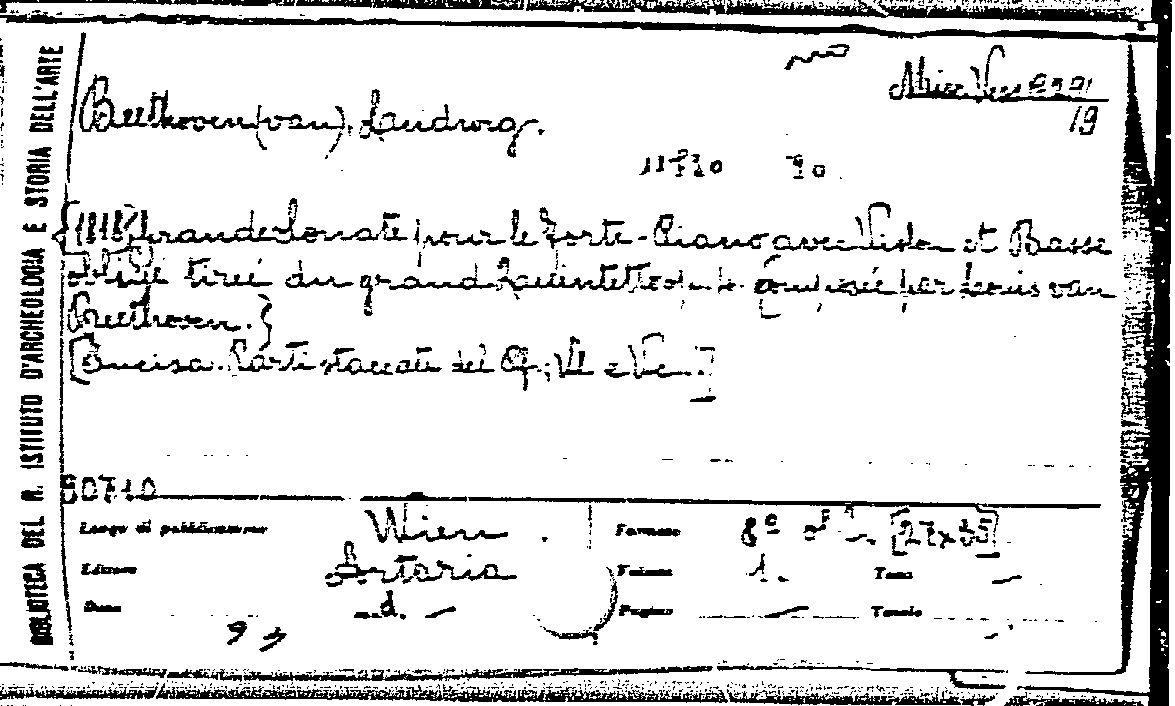 BIBLIOTECA DEL R. ISTITUTO D'ARCHEOLOGIA E STORIA DELL'ARTE
19
Beethoven (van), Ludwig.
Grande Sonate pour le Forte-Piano avec Violon et Basse
tirée du grand Quintetto composée par Louis van
Beethoven.}
[Incisa. Parti staccate del Pf; Vl e Vc.]
50710
Luogo di pubblicazione Wien. Formato 8° [27x35]
Editore Artaria Volume 1. Tomo —
Data s.d. — Pagine — Tavole —